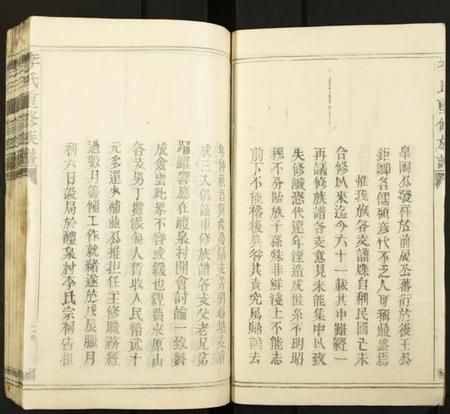 李氏重修族譜
皐閩公發祥於前成公蕃衍於後王公
鉅卿名儒碩彥代不乏人可稱鼎盛焉
惟我族各支譜牒自民國己未
合修以來迄今六十一載其中雖經一
再議修族譜各支意見未能集中以致
失修誠恐代遠年湮造成世系不明昭
穆不分貽族子孫妹非鮮淺上不能志
前下不能啓後與咎其責究屬歸誰去
成三人倡議重修族譜各支父老兄弟
踴躍響應在醴泉村開會討論一致贊
成僉云此舉不容或緩也經費來原由
各支男丁攤派每人暫收人民幣貳十
元多還少補並公推担任主修職務經
過數月籌備工作就緒遂於戊辰臘月
初六日設局於醴泉村李氏宗祠告祖
李氏重修族譜